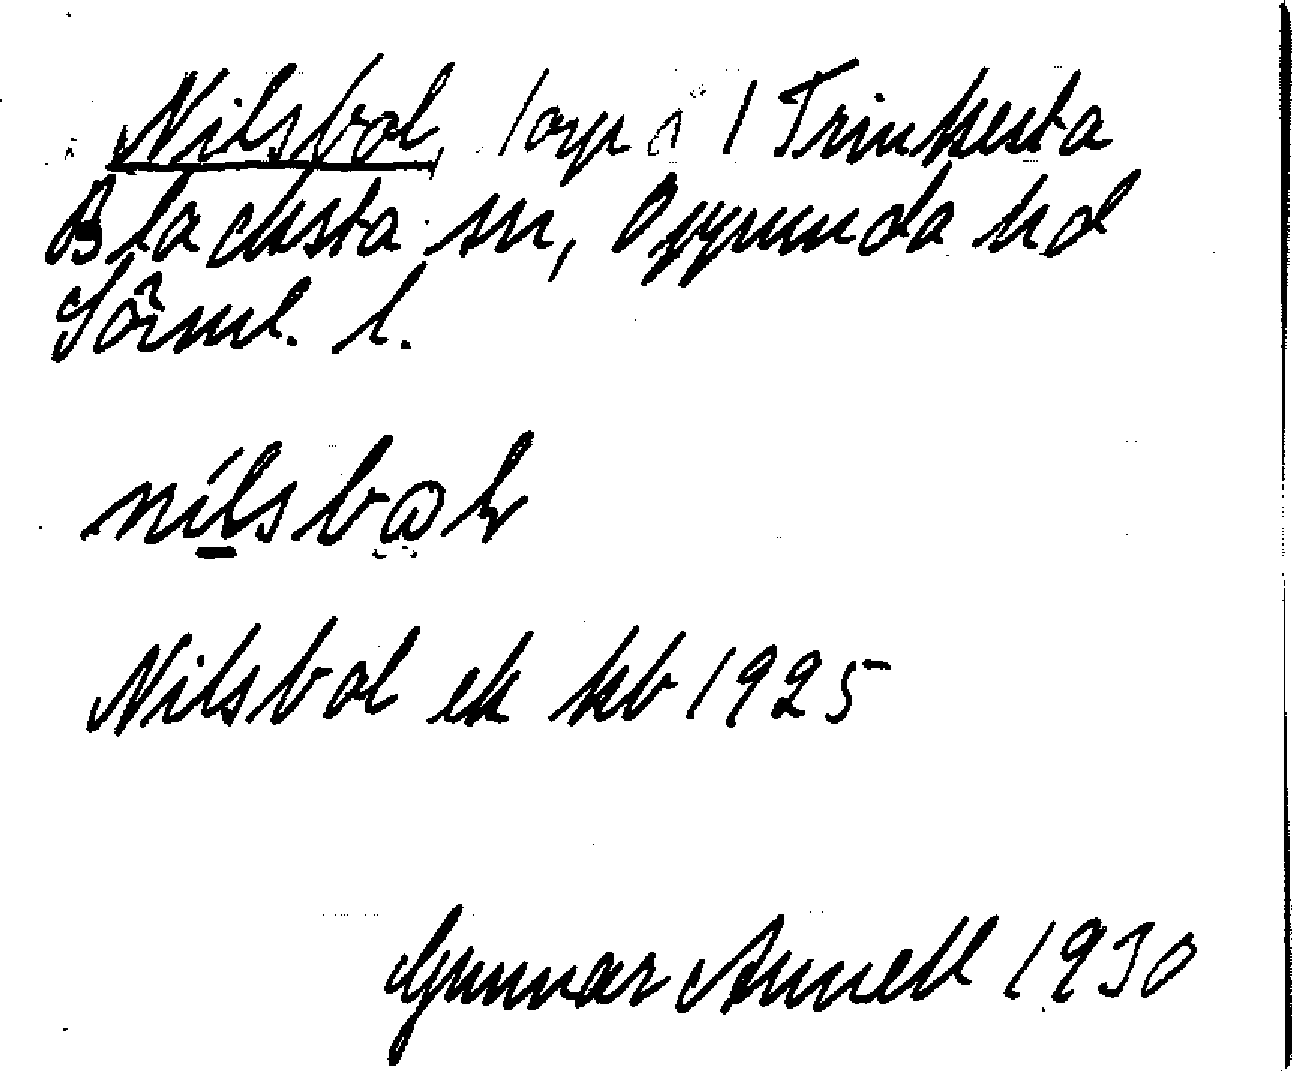 Nilsbol, torp å 1 Trinkesta
Blacksta sn, Oppunda hd
Sörml. l.
nílsbol
Nilsbol ek kb 1925
Gunnar Annell 1930